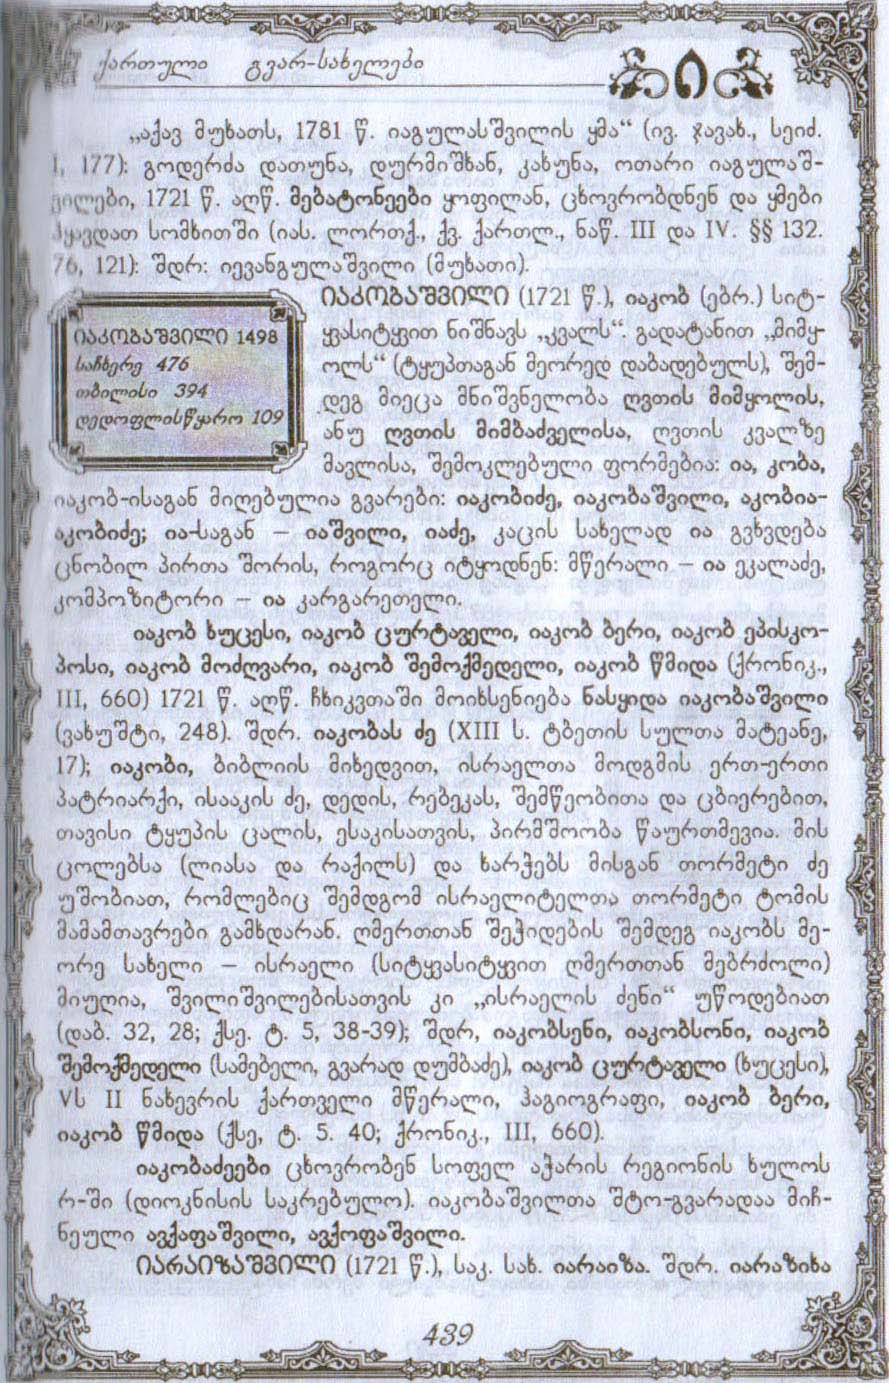 ქართული გვარ-სახელები
ი
„აქავ მუხათს, 1781 წ. იაგულასშვილის ყმა“ (ივ. ჯავახ., სეიძ.
I, 177): გოდერძა დათუნა, დურმიშხან, კახუნა, ოთარი იაგულაშ-
ვილები, 1721 წ. აღწ. მებატონეები ყოფილან, ცხოვრობდნენ და ყმები
ჰყავდათ სომხითში (იას. ლორთქ., ქვ. ქართლ., ნაწ. III და IV. §§ 132.
76, 121): შდრ: იევანგულაშვილი (მუხათი).
იაკობაშვილი 1498
საჩხერე 476
თბილისი 394
დედოფლისწყარო 109
იაკობაშვილი (1721 წ.), იაკობ (ებრ.) სიტ-
ყვასიტყვით ნიშნავს „კვალს“. გადატანით „მიმყ-
ოლს“ (ტყუპთაგან მეორედ დაბადებულს), შემ-
დეგ მიეცა მნიშვნელობა ღვთის მიმყოლის,
ანუ ღვთის მიმბაძველისა, ღვთის კვალზე
მავლისა, შემოკლებული ფორმებია: ია, კობა,
იაკობ-ისაგან მიღებულია გვარები: იაკობიძე, იაკობაშვილი, აკობია-
აკობიძე; ია-საგან – იაშვილი, იაძე, კაცის სახელად ია გვხვდება
ცნობილ პირთა შორის, როგორც იტყოდნენ: მწერალი – ია ეკალაძე,
კომპოზიტორი – ია კარგარეთელი.
იაკობ ხუცესი, იაკობ ცურტაველი, იაკობ ბერი, იაკობ ეპისკო-
პოსი, იაკობ მოძღვარი, იაკობ შემოქმედელი, იაკობ წმიდა (ქრონიკ.,
III, 660) 1721 წ. აღწ. ჩხიკვთაში მოიხსენიება ნასყიდა იაკობაშვილი
(ვახუშტი, 248). შდრ. იაკობას ძე (XIII ს. ტბეთის სულთა მატეანე,
17); იაკობი, ბიბლიის მიხედვით, ისრაელთა მოდგმის ერთ-ერთი
პატრიარქი, ისააკის ძე, დედის, რებეკას, შემწეობითა და ცბიერებით,
თავისი ტყუპის ცალის, ესაკისათვის, პირმშოობა წაურთმევია. მის
ცოლებსა (ლიასა და რაქილს) და ხარჭებს მისგან თორმეტი ძე
უშობიათ, რომლებიც შემდგომ ისრაელიტელთა თორმეტი ტომის
მამამთავრები გამხდარან. ღმერთთან შეჭიდების შემდეგ იაკობს მე-
ორე სახელი – ისრაელი (სიტყვასიტყვით ღმერთთან მებრძოლი)
მიუღია, შვილიშვილებისათვის კი „ისრაელის ძენი“ უწოდებიათ
(დაბ. 32, 28; ქსე. ტ. 5, 38-39); შდრ, იაკობსენი, იაკობსონი, იაკობ
შემოქმედელი (სამებელი, გვარად დუმბაძე), იაკობ ცურტაველი (ხუცესი),
Vს II ნახევრის ქართველი მწერალი, ჰაგიოგრაფი, იაკობ ბერი,
იაკობ წმიდა (ქსე, ტ. 5. 40; ქრონიკ., III, 660).
იაკობაძეები ცხოვრობენ სოფელ აჭარის რეგიონის ხულოს
რ-ში (დიოკნისის საკრებულო). იაკობაშვილთა შტო-გვარადაა მიჩ-
ნეული ავქაფაშვილი, ავქოფაშვილი.
იარაიზაშვილი (1721 წ.), საკ. სახ. იარაიზა. შდრ. იარაზიხა
439